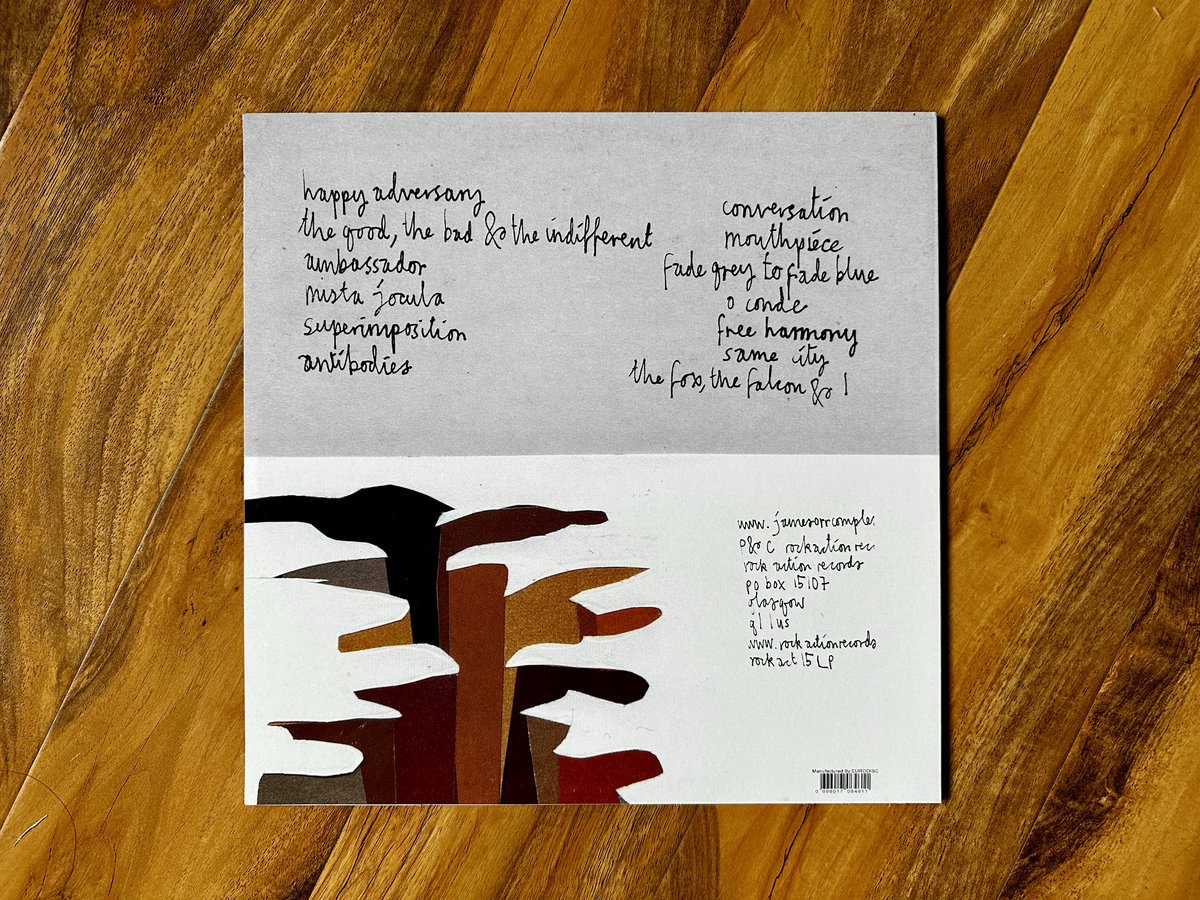 happy adversary
the good, the bad & the indifferent
ambassador
mista jocula
superimposition
antibodies
conversation
mouthpiece
fade grey to fade blue
o conde
free harmony
same city
the fox, the falcon & I
www.jamesorrcomple
p & c rock action rec
rock action records
po box 15107
glasgow
g1 1us
www.rockactionrecords
rockact15LP
Manufactured By EURODISC